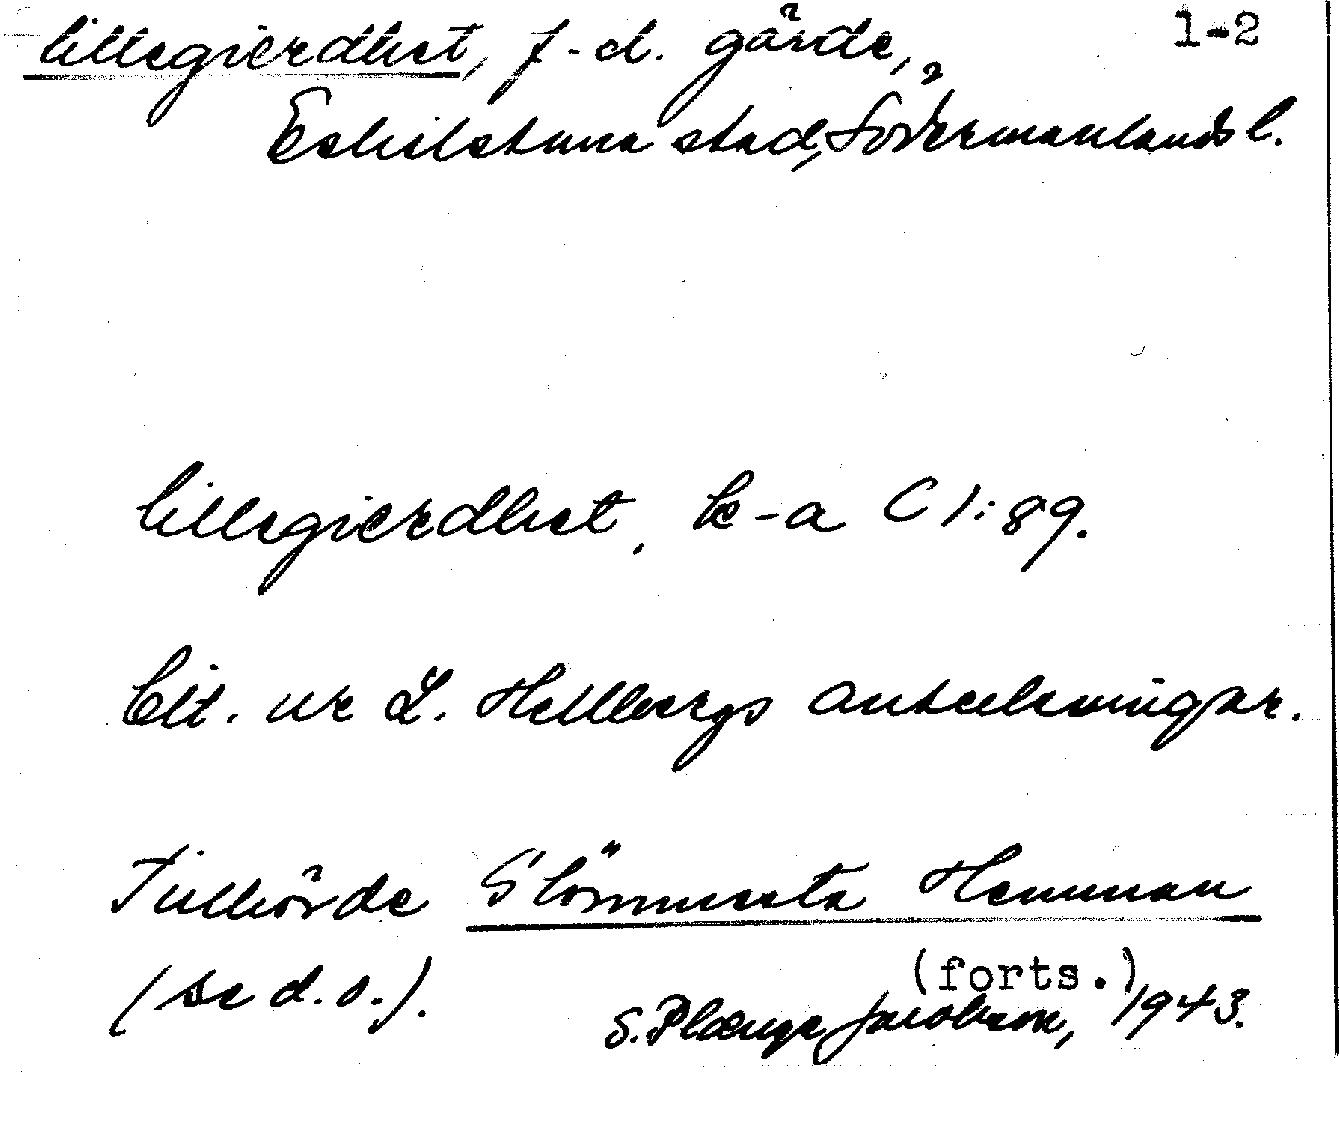 lillegierdhet, f.d. gärde, 1-2
Eskilstuna stad, Södermanlands l.
lillegierdhet. k-a C 1:89.
Cit. ur L. Hellbergs anteckningar.
Tillhörde Slömmesta Hemman
(se d.o.). (forts.)
S. Plænge Jacobson, 1943.